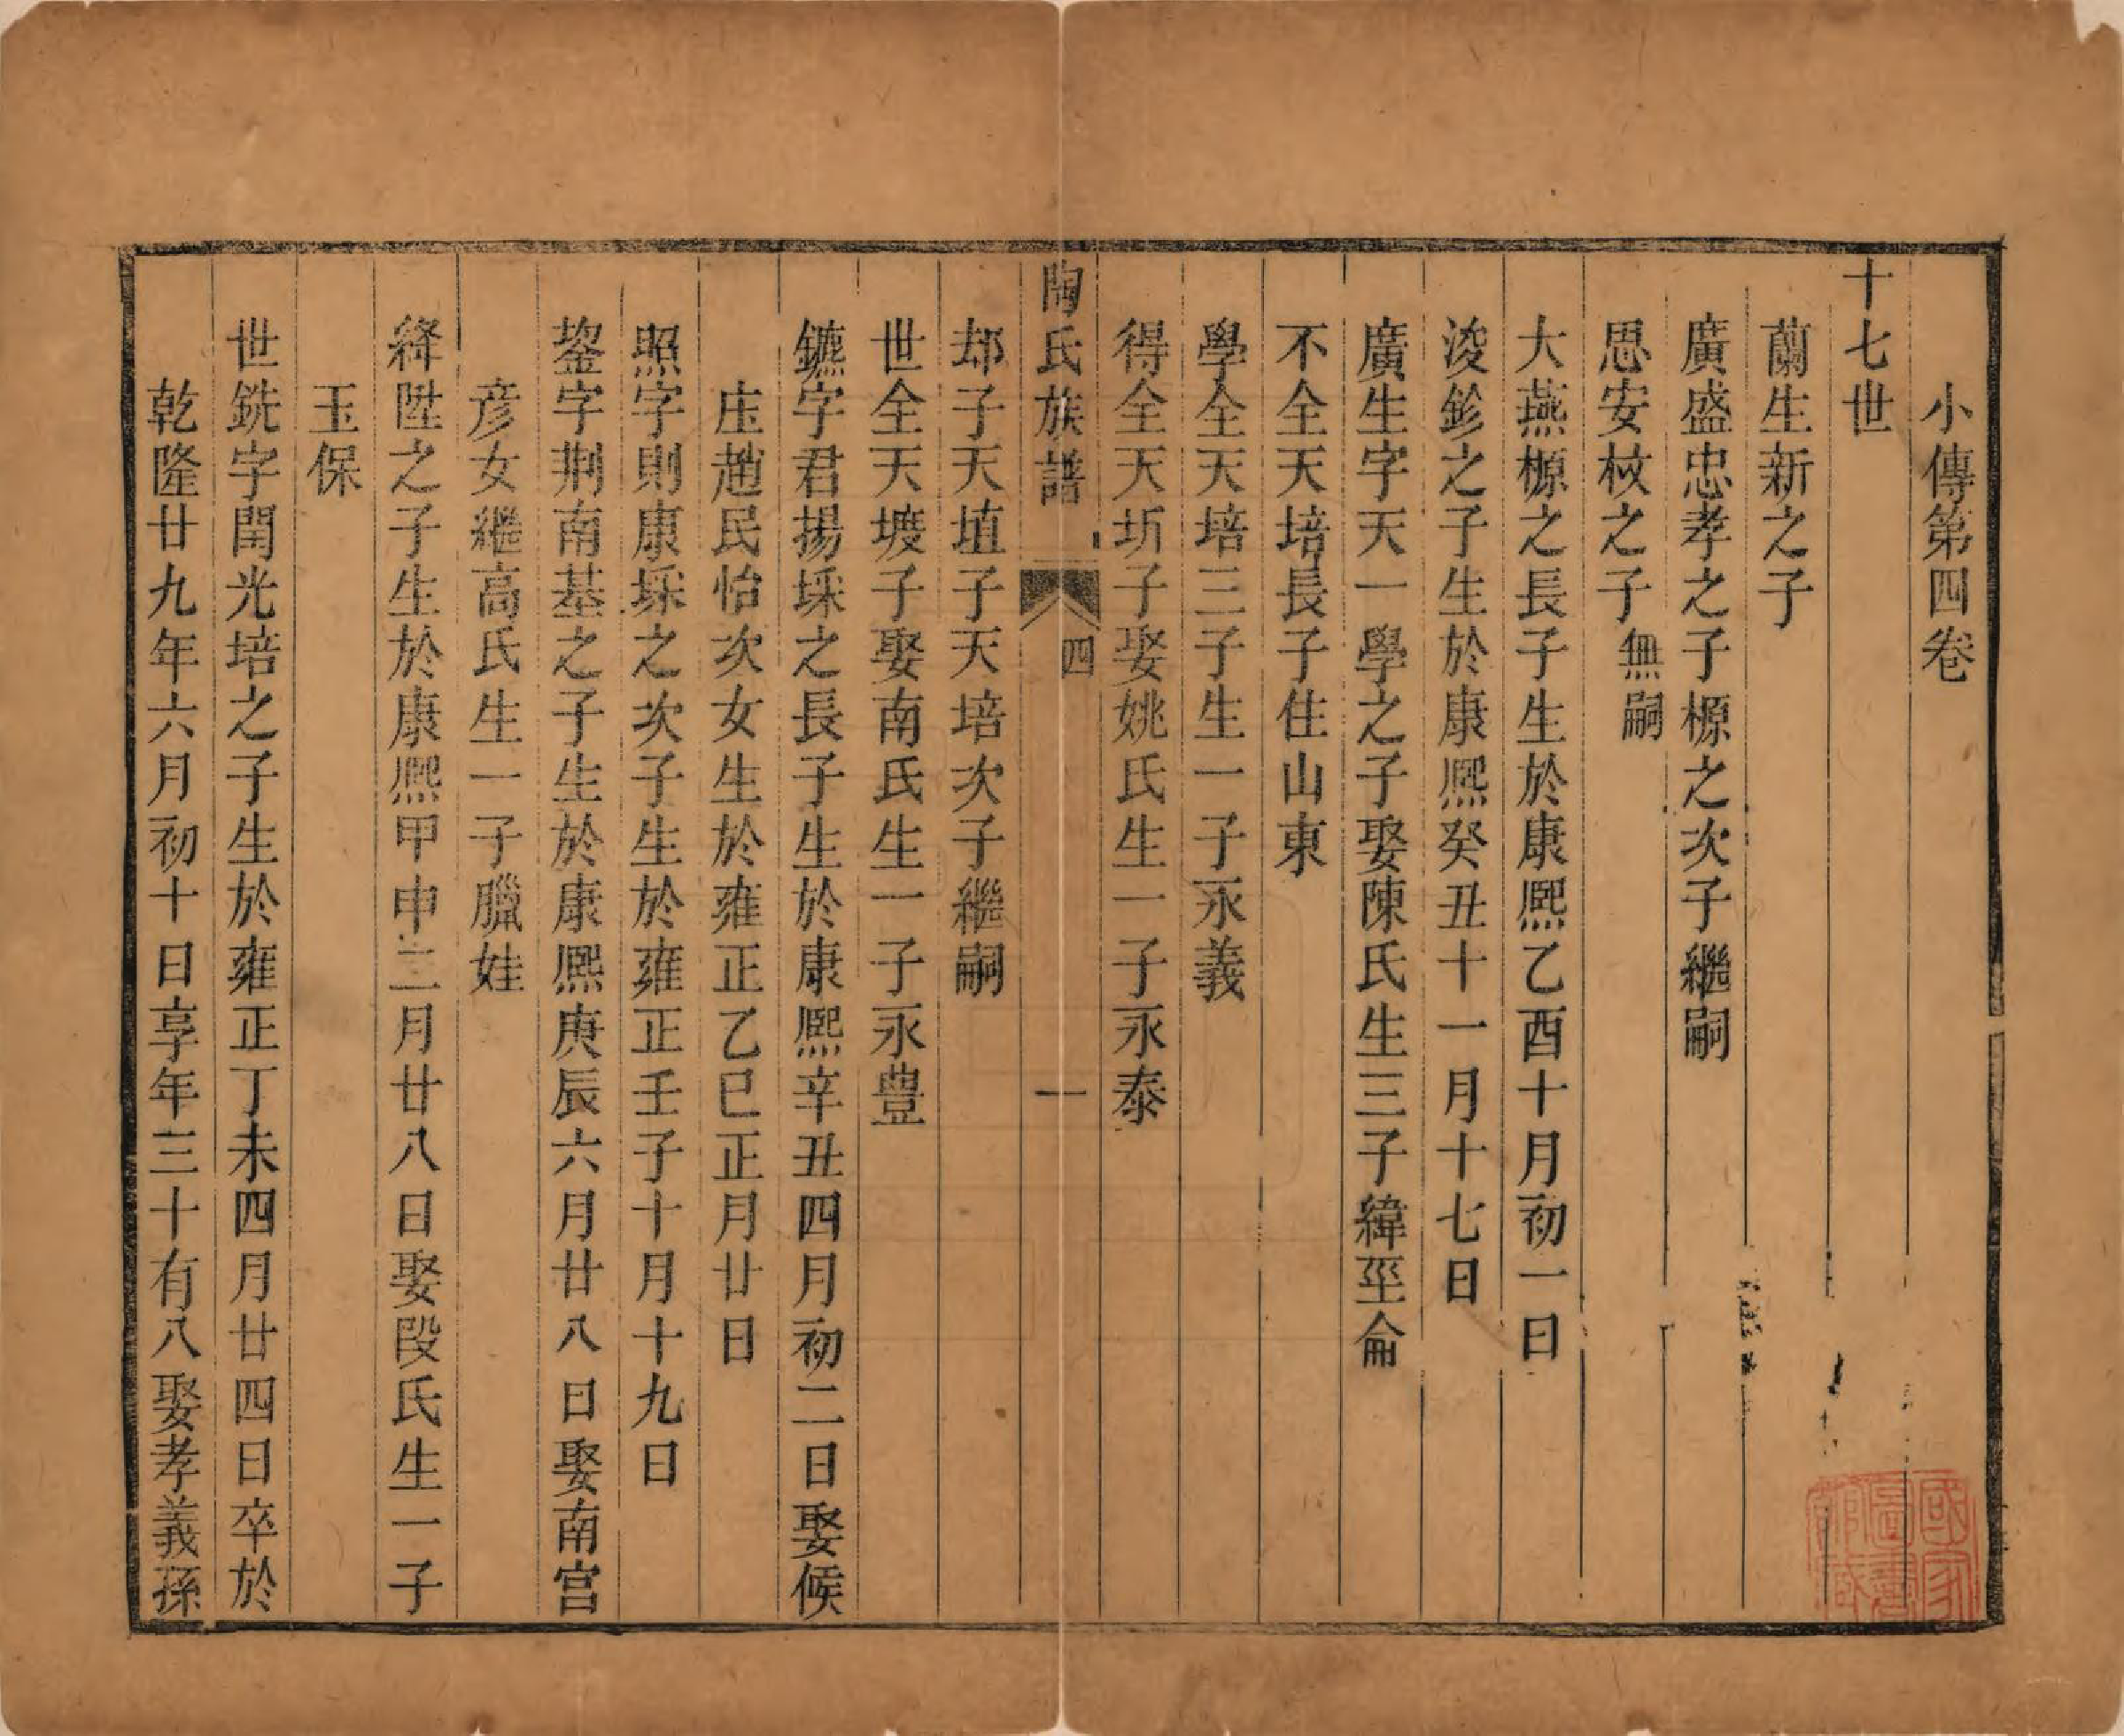 小傳第四卷
十七世
蘭生新之子
廣盛忠孝之子榞之次子繼嗣
思安桉之子無嗣
大燕榞之長子生於康熙乙酉十月初一日
浚鉁之子生於康熙癸丑十一月十七日
廣生字天一學之子娶陳氏生三子緯巠侖
不全天培長子住山東
學全天培三子生一子永義
得全天圻子娶姚氏生一子永泰
陶氏族譜 四 一
邞子天埴子天培次子繼嗣
世全天墁子娶南氏生一子永豊
鑣字君揚埰之長子生於康熙辛丑四月初二日娶候
庄趙民怡次女生於雍正乙巳正月廿日
照字則康埰之次子生於雍正壬子十月十九日
鋆字荆南基之子生於康熙庚辰六月廿八日娶南宫
彦女繼高氏生一子臘娃
絳陞之子生於康熙甲申二月廿八日娶段氏生一子
玉保
世銑字閏光培之子生於雍正丁未四月廿四日卒於
乾隆廿九年六月初十日享年三十有八娶孝義孫
國家圖書館藏